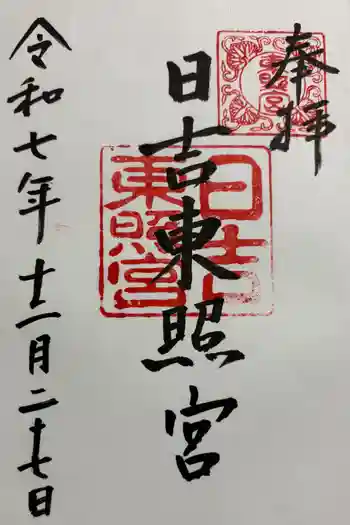 奉拝
日吉東照宮
日吉
東照宮
令和七年十一月二十七日